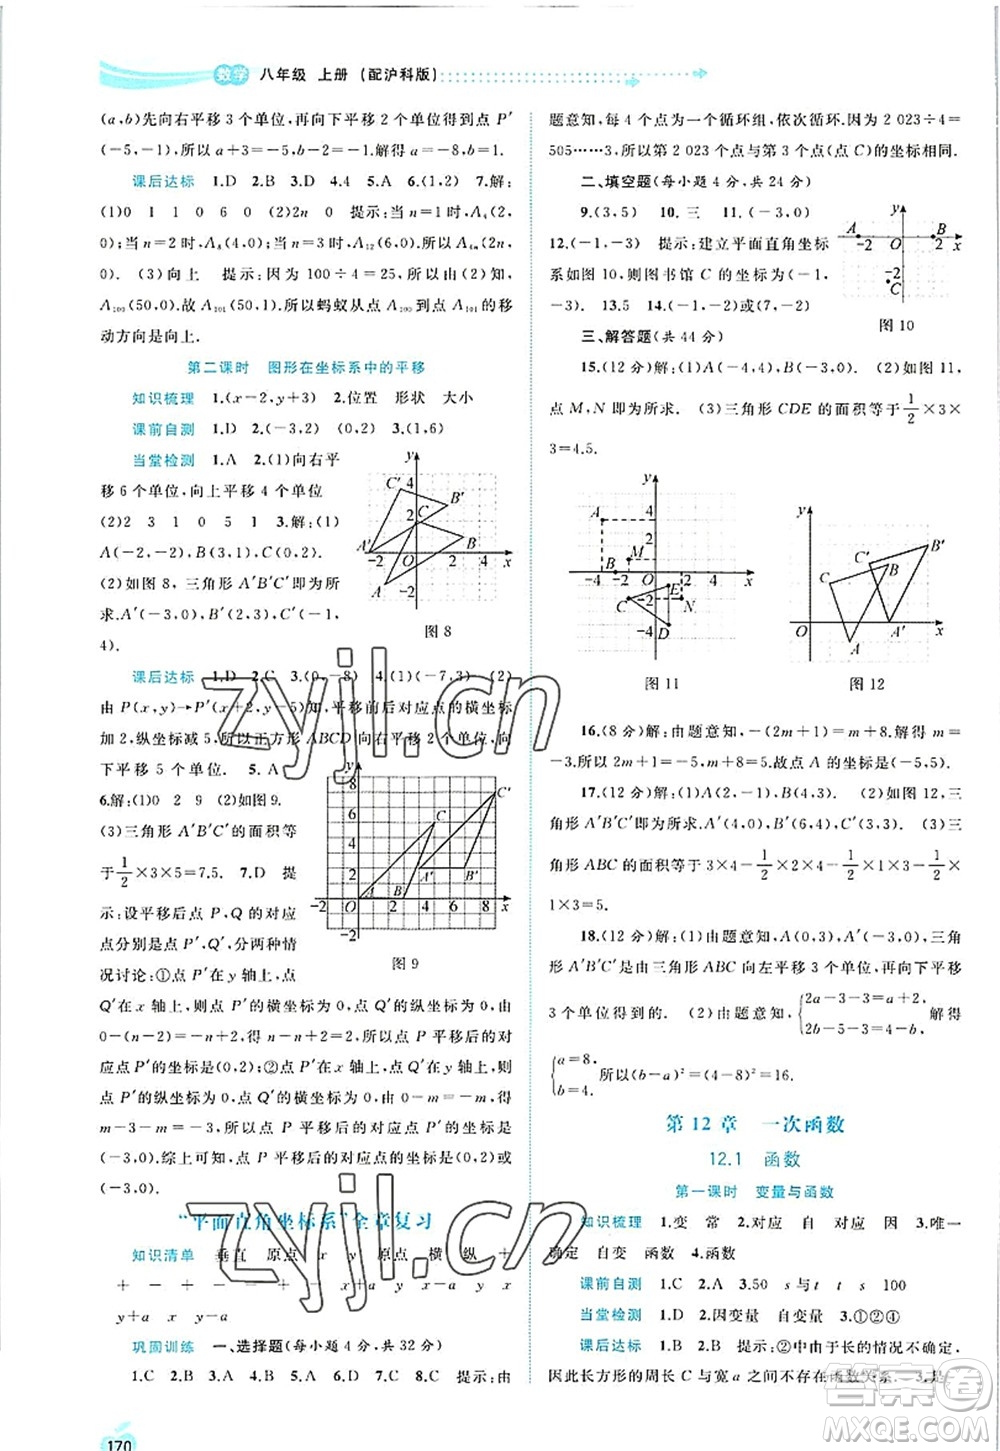 数学 八年级 上册 (配沪科版)
(a,b)先向右平移3个单位,再向下平移2个单位得到点P′
(-5,-1),所以a+3=-5,b-2=-1.解得a=-8,b=1.
课后达标 1.D 2.B 3.D 4.4 5.A 6.(1,2) 7.解:
(1)0 1 1 0 6 0 (2)2n 0 提示:当n=1时,A₄(2,
0);当n=2时,A₈(4,0);当n=3时,A₁₂(6,0),所以A₄ₙ(2n,
0). (3)向上 提示:因为100÷4=25,所以由(2)知,
A₁₀₀(50,0).故A₁₀₁(50,1).所以蚂蚁从点A₁₀₀到点A₁₀₁的移
动方向是向上.
第二课时 图形在坐标系中的平移
知识梳理 1.(x-2,y+3) 2.位置 形状 大小
课前自测 1.D 2.(-3,2) (0,2) 3.(1,6)
当堂检测 1.A 2.(1)向右平
移6个单位,向上平移4个单位
(2)2 3 1 0 5 1 3.解:(1)
A(-2,-2),B(3,1),C(0,2).
(2)如图8,三角形A′B′C′即为所
求.A′(-3,0),B′(2,3),C′(-1,
4).
y C′ 4 B′ 2 C B A′ -2 O 2 4 x A -2
图8
课后达标 1.D 2.C 3.(0,0) 4.(1)(-7,3) (2)
由P(x,y)→P′(x+2,y-5)知,平移前后对应点的横坐标
加2,纵坐标减5,所以正方形ABCD向右平移2个单位,向
下平移5个单位. 5.A
6.解:(1)0 2 9 (2)如图9.
(3)三角形A′B′C′的面积等
于1/2×3×5=7.5. 7.D 提
示:设平移后点P,Q的对应
点分别是点P′,Q′,分两种情
况讨论:①点P′在y轴上,点
y 8 C′ 6 C 4 2 A′ B′ A B -2 O 2 4 6 8 x -2
图9
Q′在x轴上,则点P′的横坐标为0,点Q′的纵坐标为0,因为
0-(n-2)=-n+2,所以n-n+2=2,所以点P平移后的对
应点P′的坐标是(0,2);②点P′在x轴上,点Q′在y轴上,则
点P′的纵坐标为0,点Q′的横坐标为0,因为0-m=-m,所以
m-3-m=-3,所以点P平移后的对应点P′的坐标是
(-3,0).综上可知,点P平移后的对应点的坐标是(0,2)或
(-3,0).
“平面直角坐标系”全章复习
知识清单 垂直 原点 x y 原点 横 纵 +
+ - + - - + - x+a y x-a y x
y+a x y-a
巩固训练 一、选择题(每小题4分,共32分)
1.C 2.A 3.D 4.B 5.A 6.B 7.C 8.C 提示:由
170
题意知,每4个点为一个循环组,依次循环.因为2 023÷4=
505……3,所以第2 023个点与第3个点(点C)的坐标相同.
二、填空题(每小题4分,共24分)
9.(3,5) 10.三 11.(-3,0)
12.(-1,-3) 提示:建立平面直角坐标
系如图10,所以图书馆C的坐标为(-1,
-3). 13.5 14.(-1,-2)或(3,0)
y A B -2 O 2 x -2 C
图10
三、解答题(共44分)
15.(8分)解:(1)A(-4,4) C(-2,-2). (2)如图11,
点M,N即为所求. (3)三角形CDE的面积等于1/2×3×
3=4.5.
y 4 A 2 M B -4 -2 O 2 4 6 x E C -2 N -4 D
图11
y B′ C′ B C O A′ x A
图12
16.(8分)解:由题意知,-(2m+1)=m+8,解得m=
-3.所以2m+1=-5,m+8=5.故点A的坐标为(-5,5).
17.(12分)解:(1)A(2,-1) B(4,3). (2)如图12,三
角形A′B′C′即为所求.A′(4,0),C′(3,3). (3)三
角形ABC的面积等于3×4-1/2×1×3-1/2×2×4-1/2×
3×1=5.
18.(12分)解:(1)由题意知,A(0,3),A′(-3,0),三角
形A′B′C′是由三角形ABC向左平移3个单位,再向下平移
3个单位得到的. (2)由题意知,{2a-3-3=a+2, 2b-5-3=b-4.解得
{a=8, b=4.所以(b-a)²=(4-8)²=16.
第12章 一次函数
12.1 函数
第一课时 变量与函数
知识梳理 1.变 常 2.对应 自 对应 因 3.唯一
确定 自变 函数 4.函数
课前自测 1.C 2.A 3.50 s与t t s 100
当堂检测 1.D 2.因变量 自变量 3.①②④
课后达标 1.B 2.B 提示:②中由于长的情况不确定,
因此长方形的周长C与宽a之间不存在函数关系. 3.是
zyjl.cn
zyjl.cn
答案圈
MXQE.COM